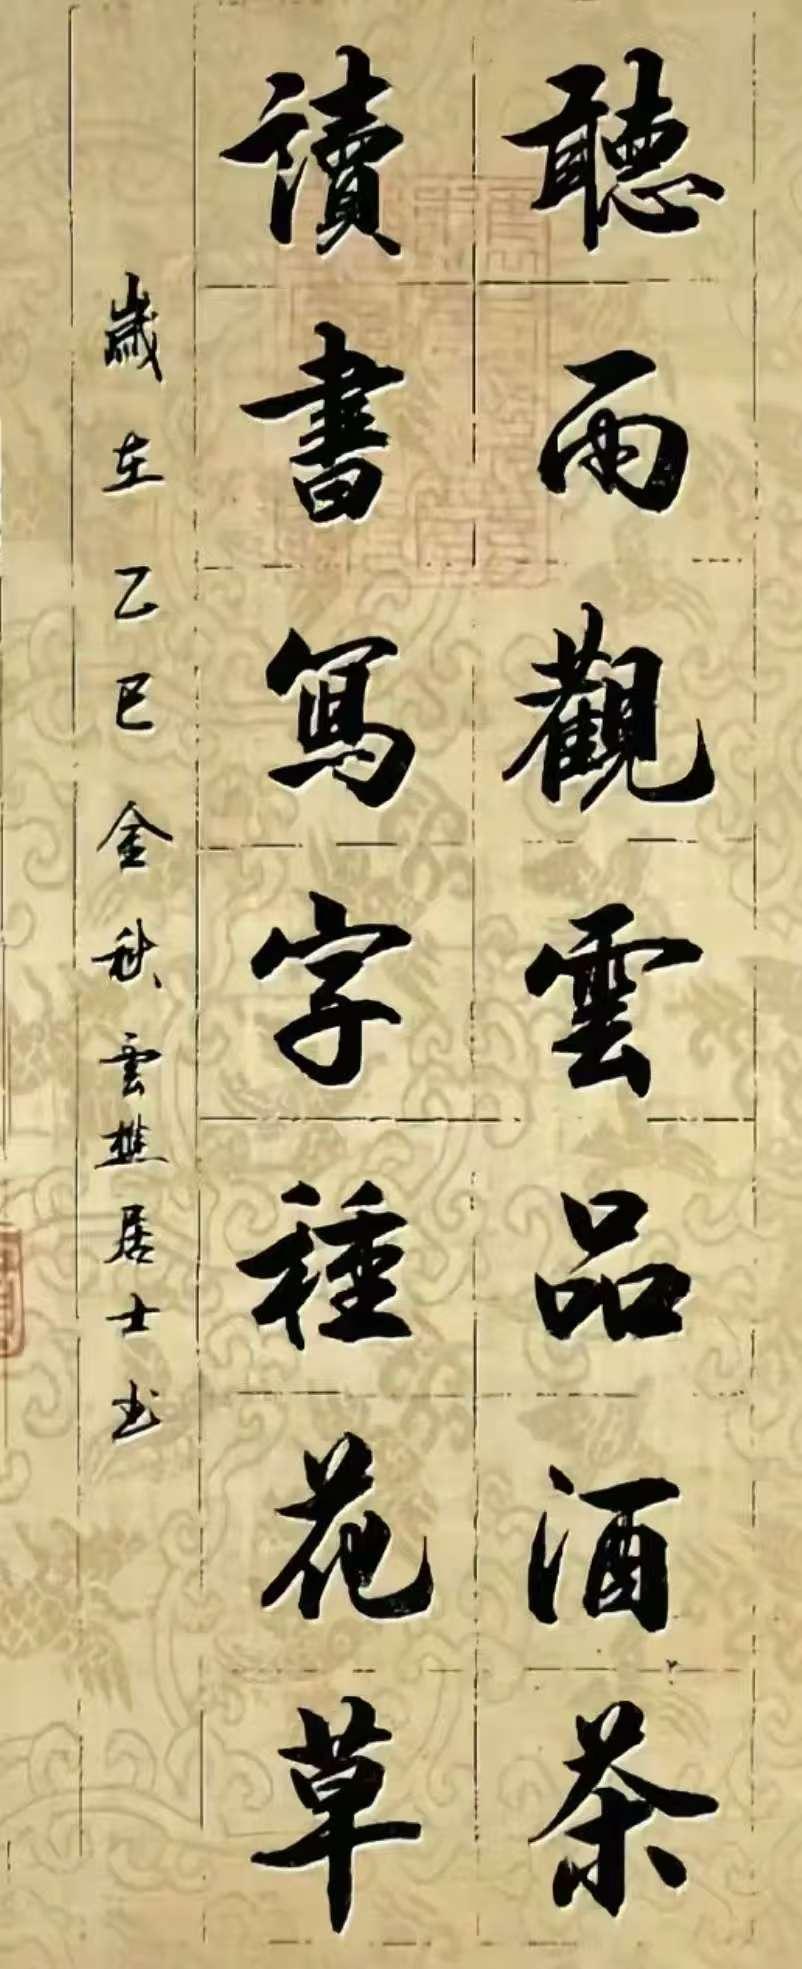 聽雨觀雲品酒茶
讀書寫字種花草
歲在乙巳金秋雲樵居士书